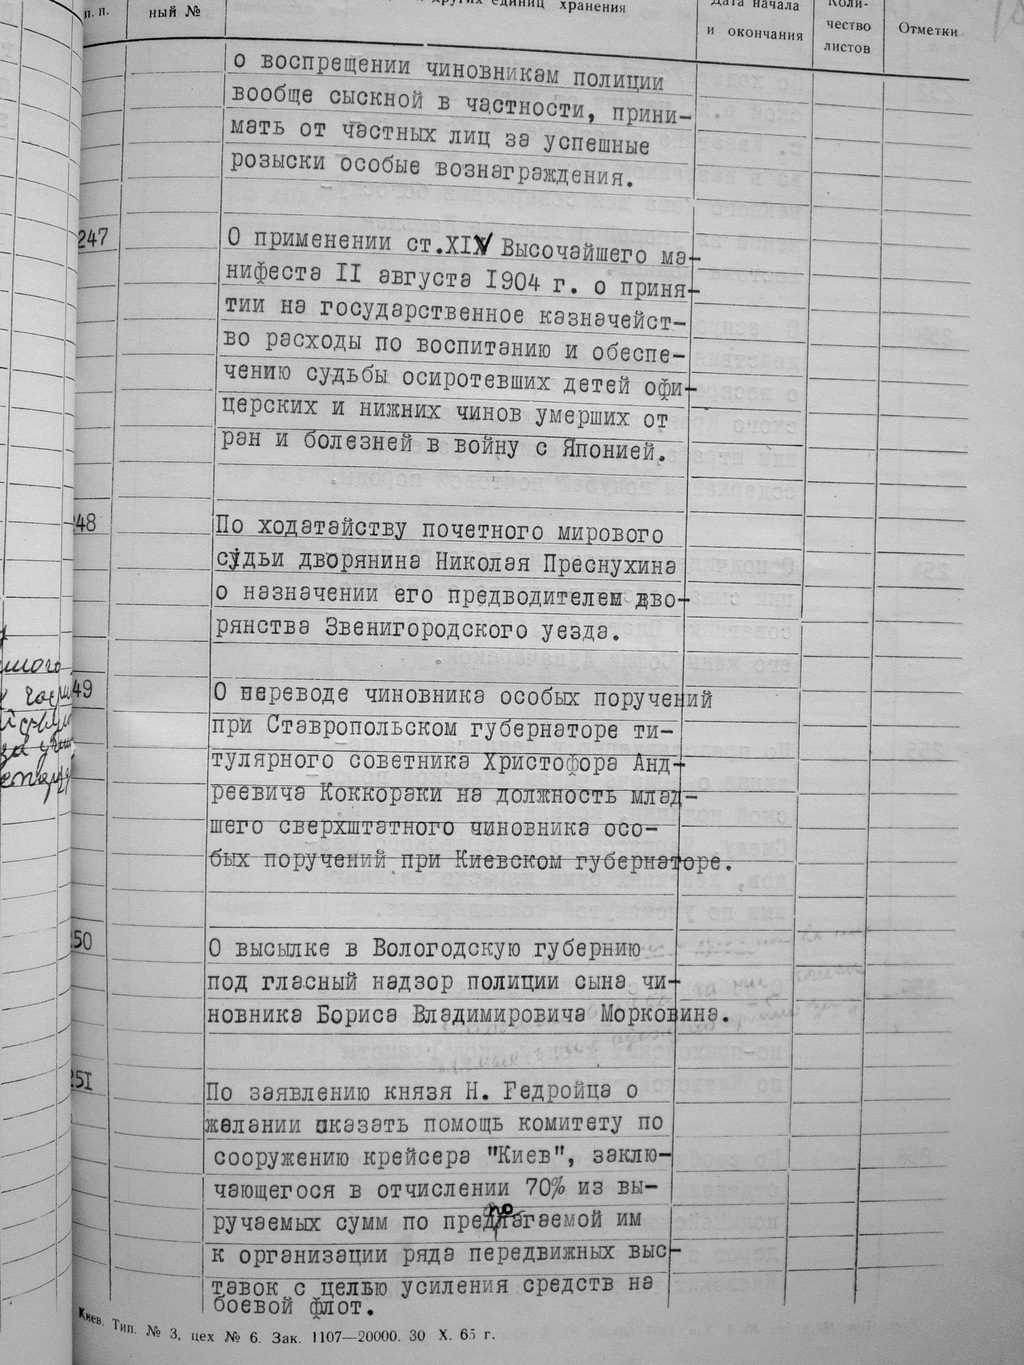 п. п.
ный №
других единиц хранения
Дата начала
и окончания
Коли-
чество
листов
Отметки
о воспрещении чиновникам полиции
вообще сыскной в частности, прини-
мать от частных лиц за успешные
розыски особые вознаграждения.
247
О применении ст.XIV Высочайшего ма-
нифеста II августа I904 г. о приня-
тии на государственное казначейст-
во расходы по воспитанию и обеспе-
чению судьбы осиротевших детей офи-
церских и нижних чинов умерших от
ран и болезней в войну с Японией.
248
По ходатайству почетного мирового
судьи дворянина Николая Преснухина
о назначении его предводителем дво-
рянства Звенигородского уезда.
49
О переводе чиновника особых поручений
при Ставропольском губернаторе ти-
тулярного советника Христофора Анд-
реевича Коккораки на должность млад-
шего сверхштатного чиновника осо-
бых поручений при Киевском губернаторе.
250
О высылке в Вологодскую губернию
под гласный надзор полиции сына чи-
новника Бориса Владимировича Морковина.
25I
По заявлению князя Н. Гедройца о
желании оказать помощь комитету по
сооружению крейсера "Киев", заклю-
чающегося в отчислении 70% из вы-
ручаемых сумм по предпо лагаемой им
к организации ряда передвижных выс-
тавок с целью усиления средств на
боевой флот.
Киев. Тип. № 3, цех № 6. Зак. 1107—20000. 30 X. 65 г.